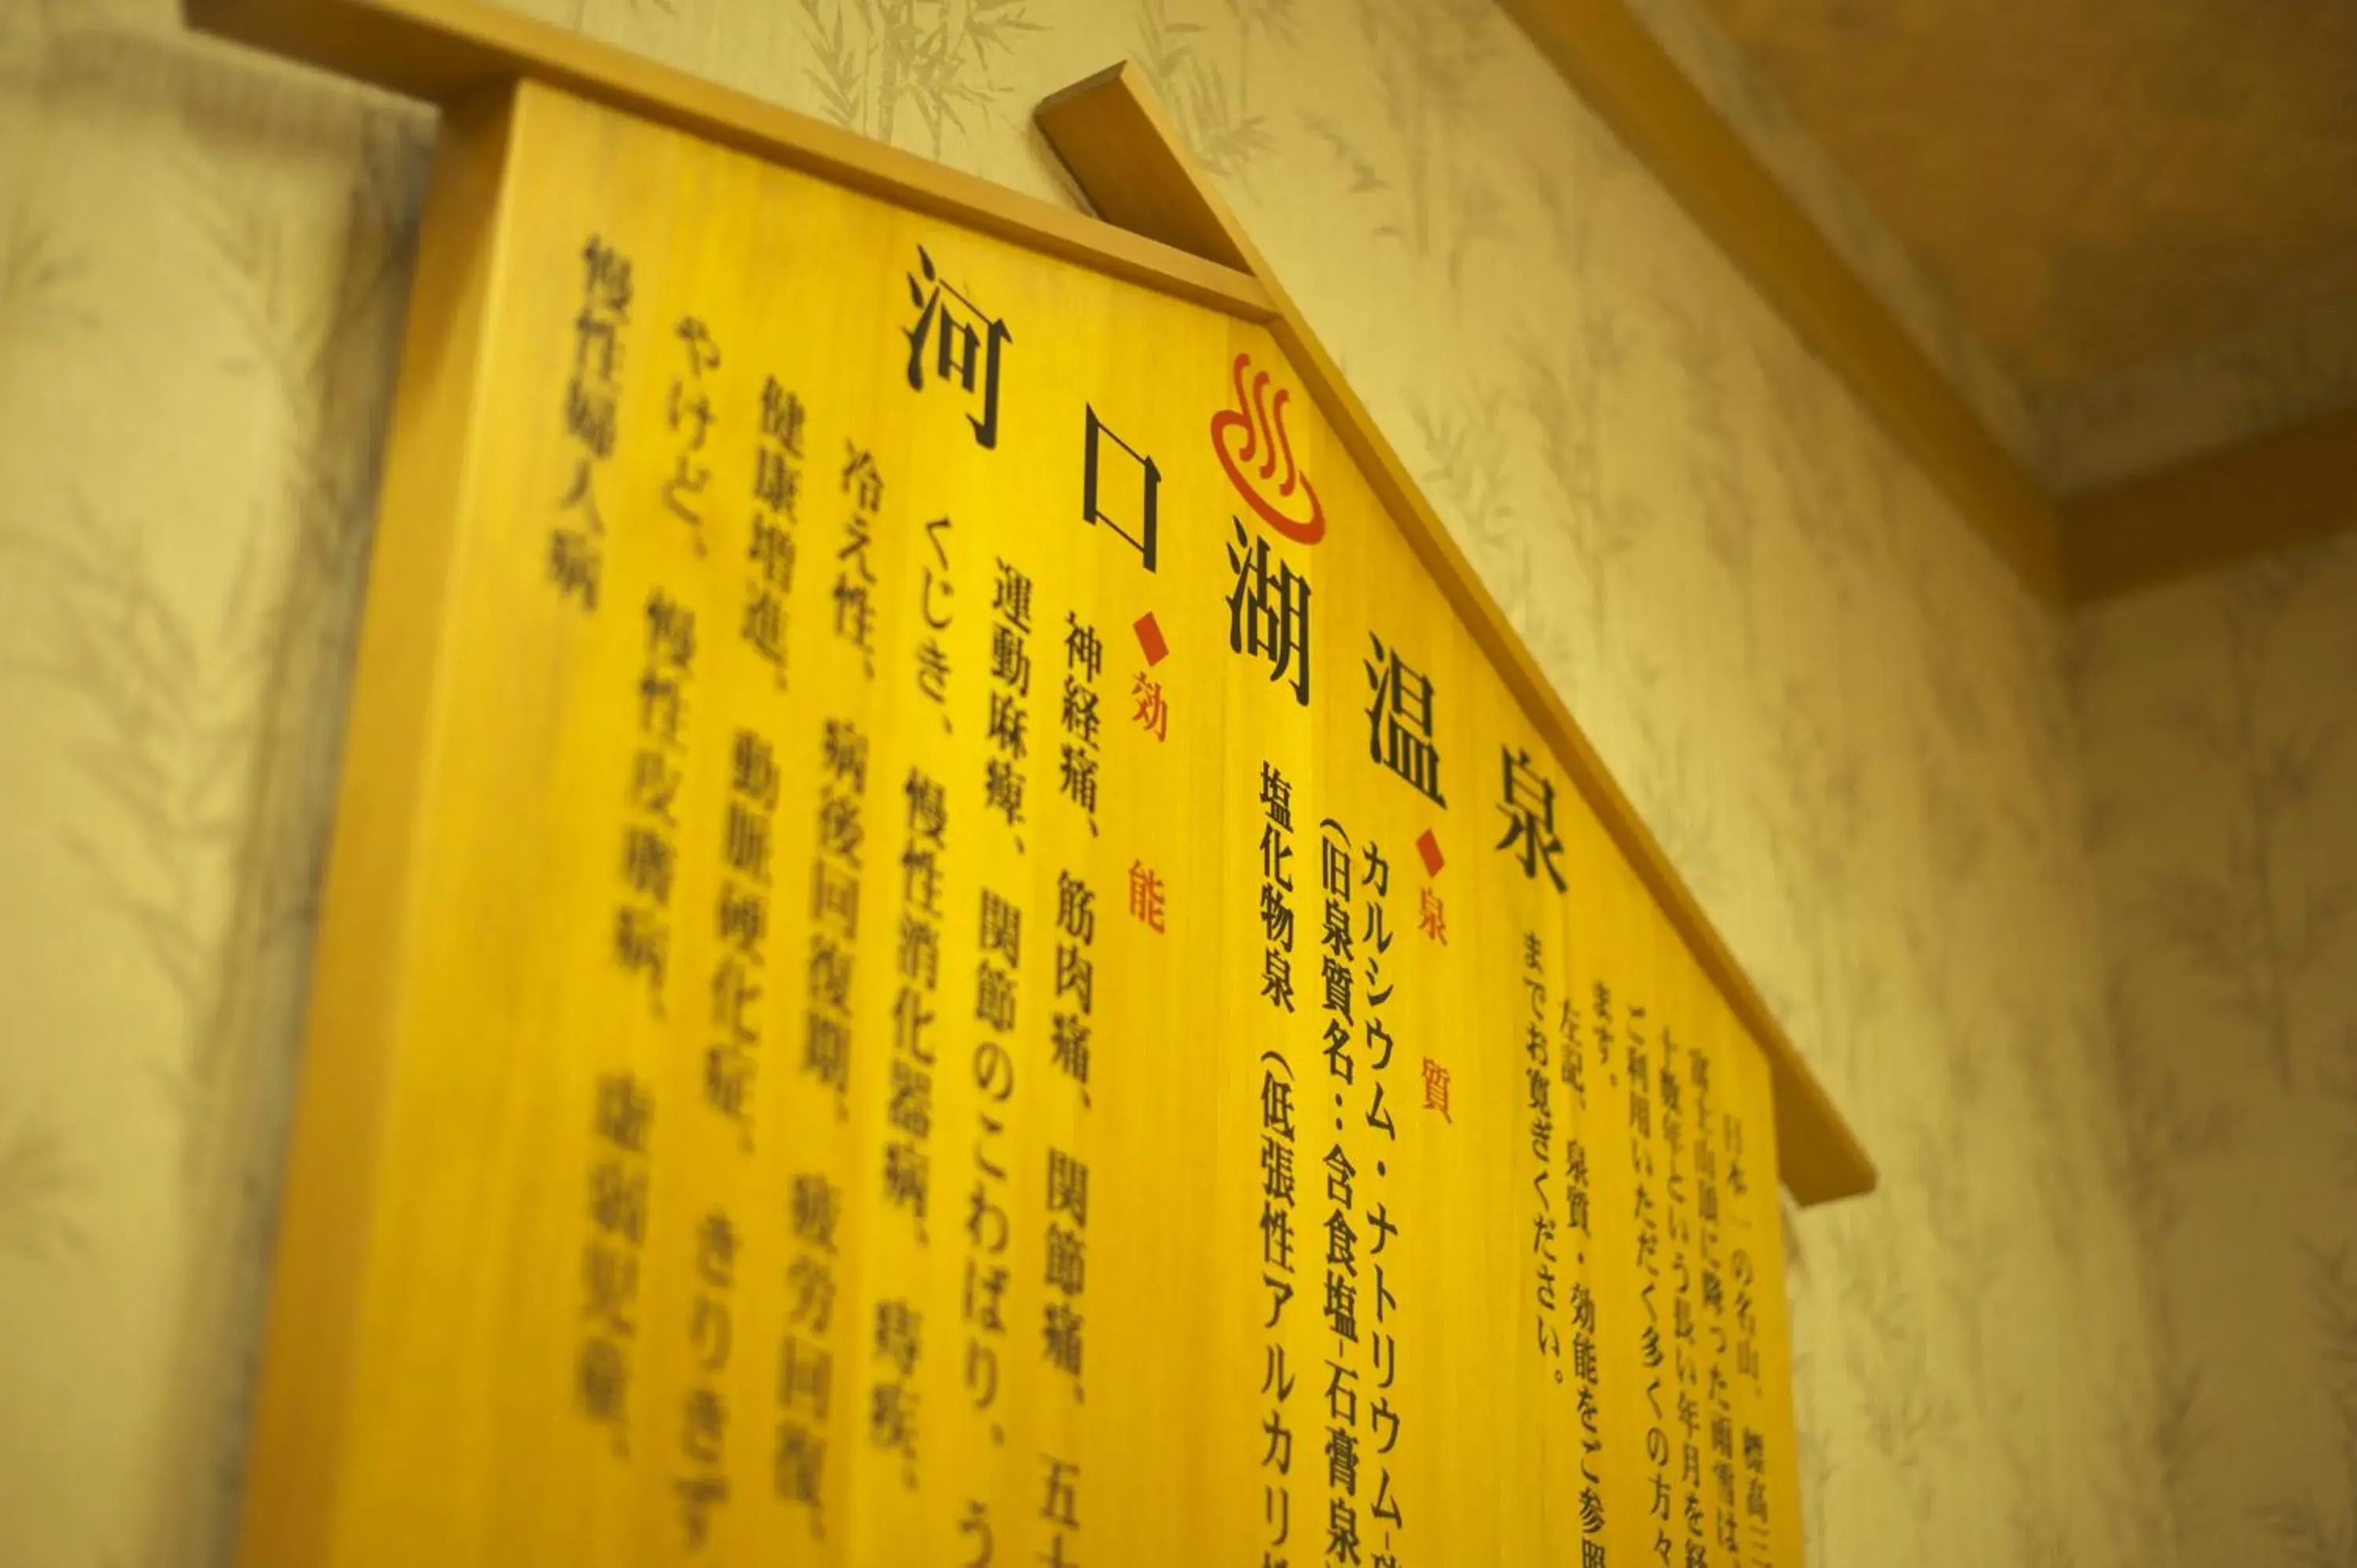 河口湖温泉
日本一の名山、標高三
富士山頂に降った雨雪は、
十数年という長い年月を経
ご利用いただく多くの方々
ます。
左記、泉質・効能をご参照
までお寛ぎください。
◆泉質
カルシウム・ナトリウム-
(旧泉質名：含食塩-石膏泉
塩化物泉 (低張性アルカリ
◆効能
神経痛、筋肉痛、関節痛、五十
運動麻痺、関節のこわばり、う
くじき、慢性消化器病、痔疾、
冷え性、病後回復期、疲労回復、
健康増進、動脈硬化症、きりきず
やけど、慢性皮膚病、虚弱児童、
慢性婦人病